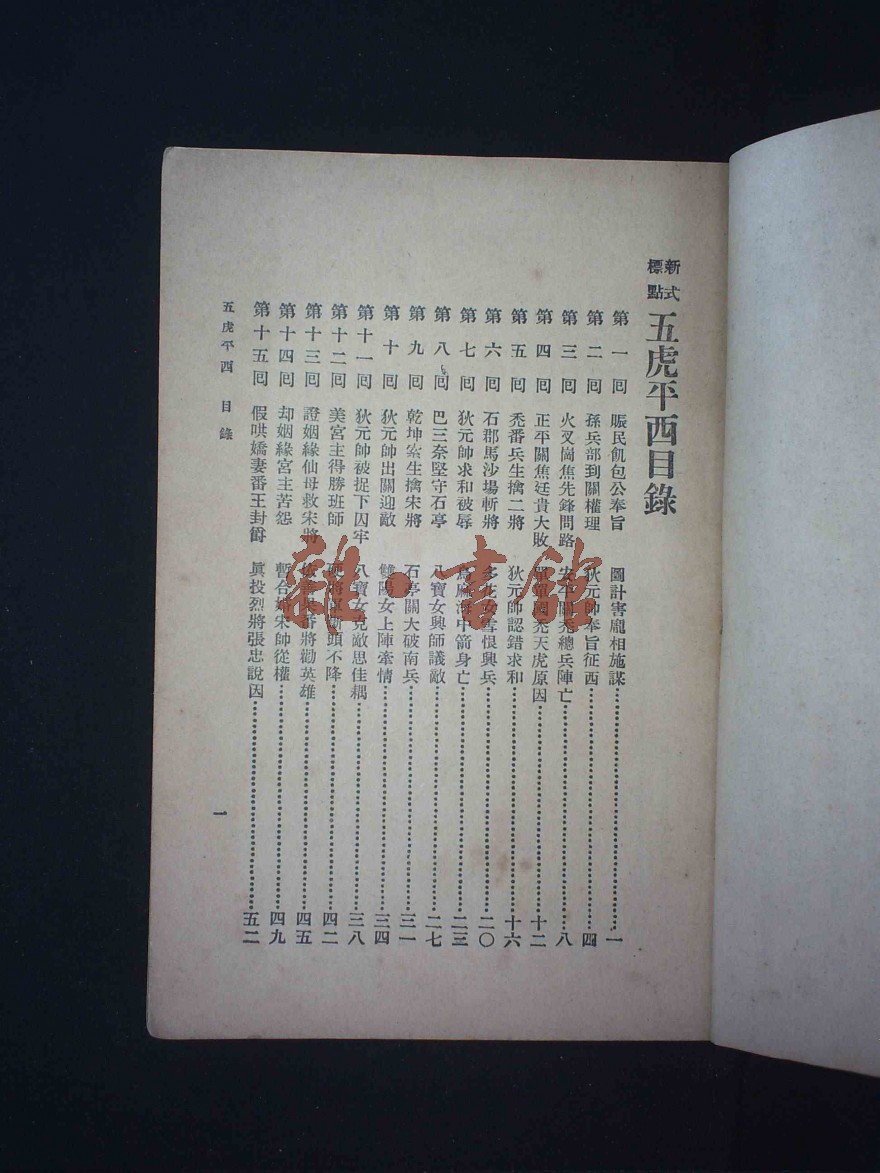 新式標點
五虎平西目錄
第一回 賑民飢包公奉旨 圖計害龐相施謀 一
第二回 孫兵部到關權理 狄元帥奉旨征西 四
第三回 火叉崗焦先鋒問路 安平關禿總兵陣亡 八
第四回 正平關焦廷貴大敗 單單國禿天虎原因 十二
第五回 禿番兵生擒二將 狄元帥認錯求和 十六
第六回 石郡馬沙場斬將 多花女雪恨興兵 二〇
第七回 狄元帥求和被辱 海中箭身亡 二三
第八回 巴三奈堅守石亭 八寶女興師議敵 二七
第九回 乾坤索生擒宋將 石亭關大破南兵 三一
第十回 狄元帥出關迎敵 雙陽女上陣牽情 三四
第十一回 狄元帥被捉下囚牢 八寶女克敵思佳耦 三八
第十二回 美宮主得勝班師 硬將軍斷頭不降 四二
第十三回 證姻緣仙母救宋將 番將勸英雄 四五
第十四回 却姻緣宮主苦怨 暫合婚宋帥從權 四九
第十五回 假哄嬌妻番王封爵 眞投烈將張忠說因 五二
五虎平西 目錄
一
雜·書館